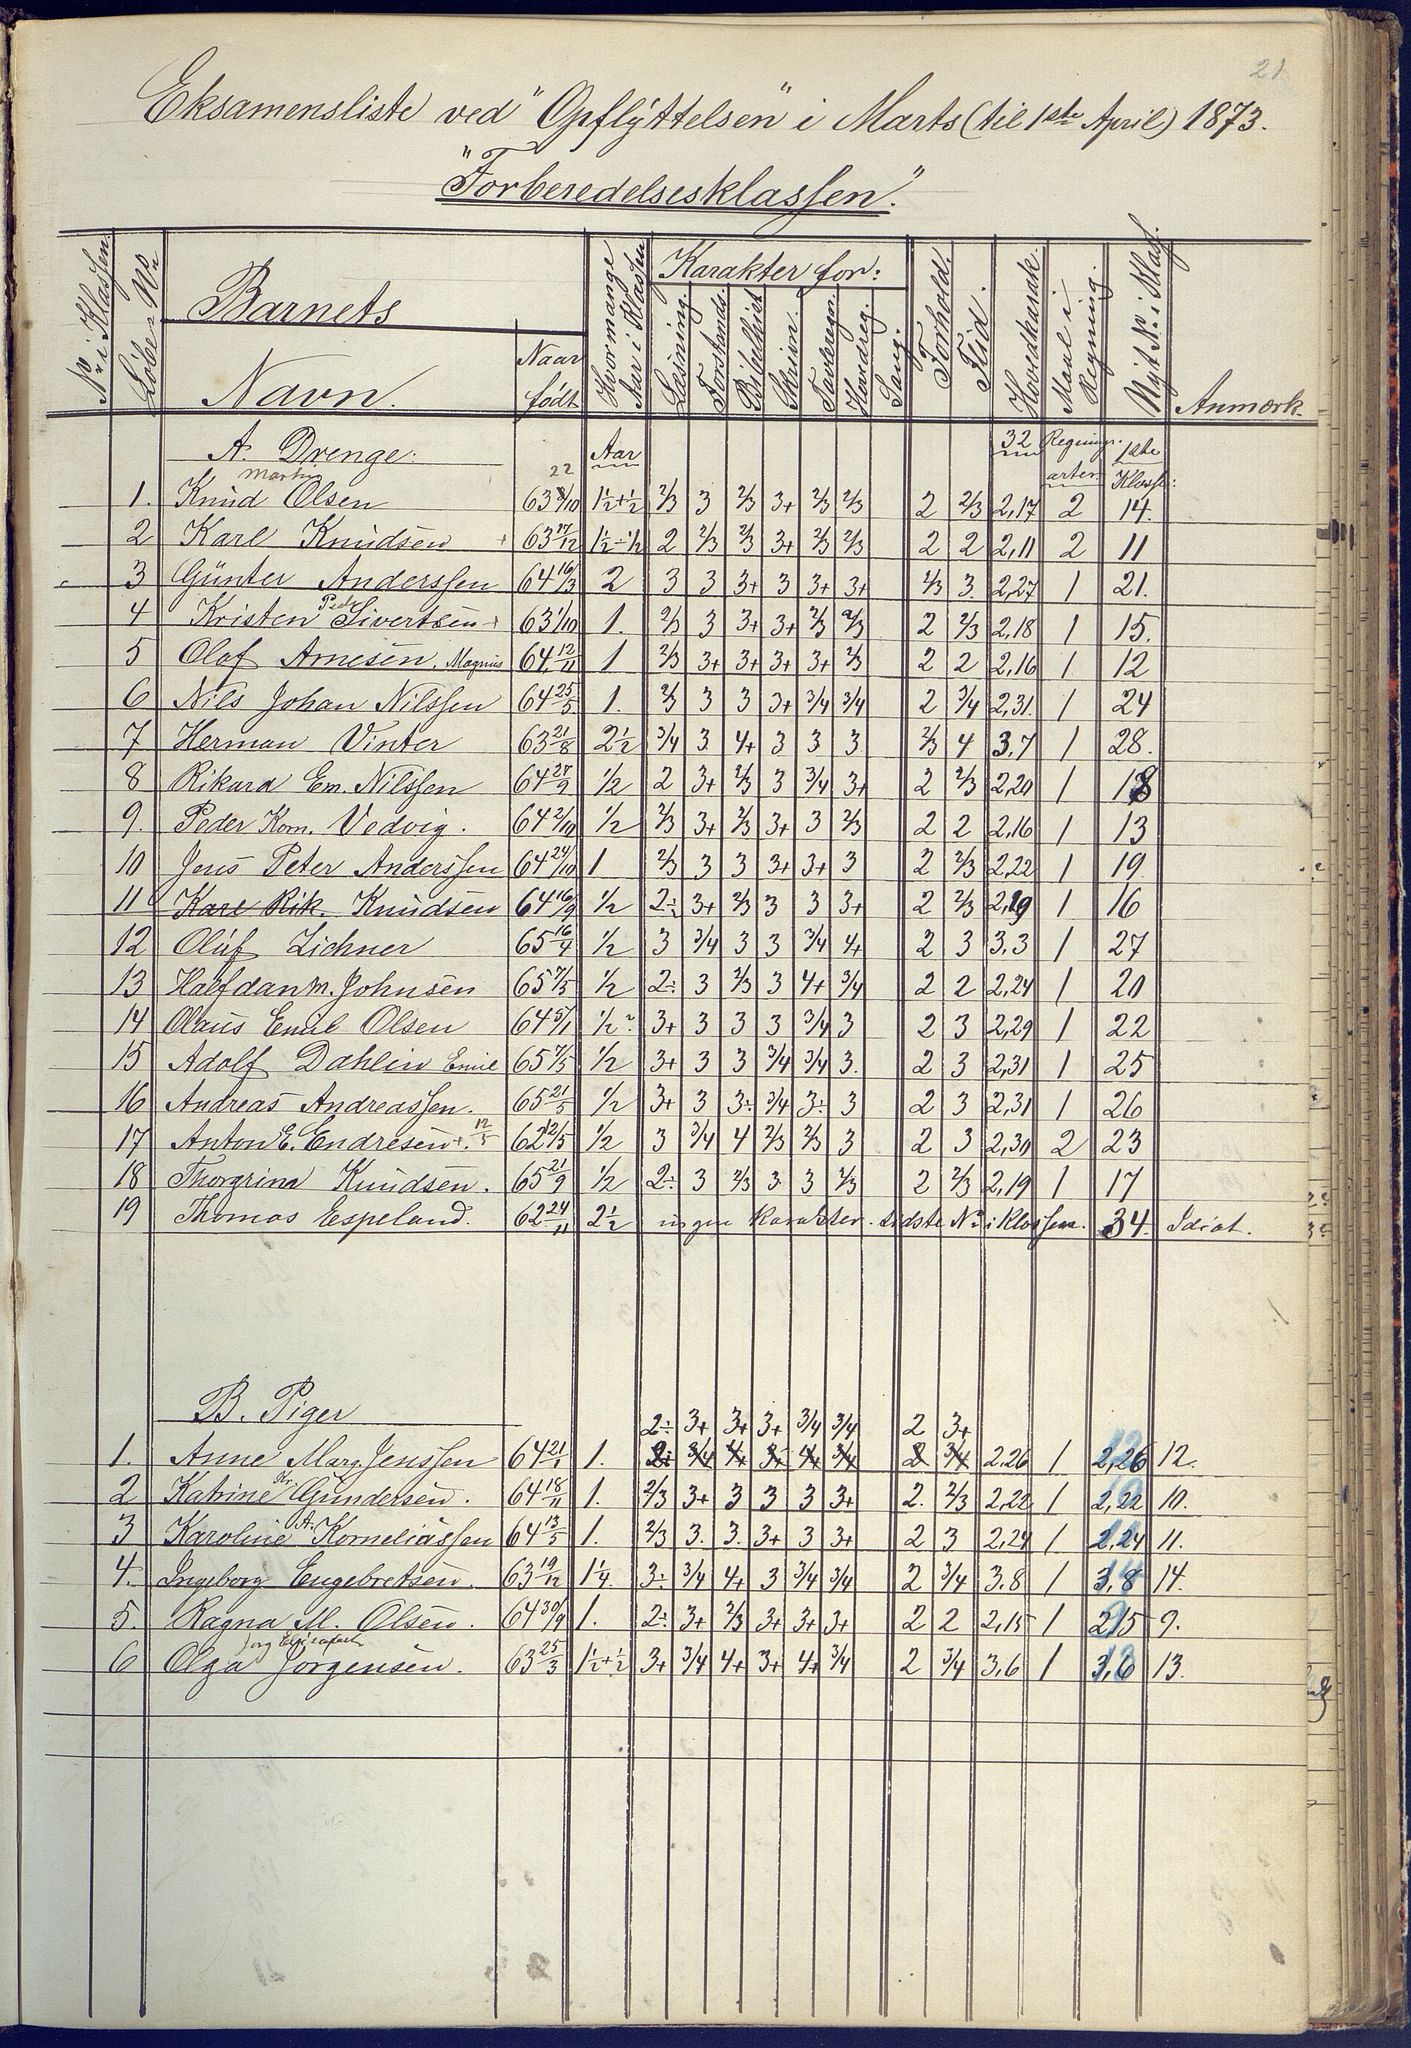 21
Eksamensliste ved "Opflyttelsen" i Marts (til 1ste April) 1873.
"Forberedelsesklassen".
No i Klassen. Løbe-No Barnets Navn. Naar født Hvormange Aar i Klassen Karakter for: Læsning. Forstands. Bibelhist. Skrivn. Tavleregn. Hovedreg. Sang. Forhold. Flid. Hovedkarak. Maal i Regning. Nyt No i Klass. Anmærk.
A. Drenge. Aar 32 Regnings-arter 1ste Klasse:
1. Knud Martin Olsen 63 22/10 1½+½ 2/3 3 2/3 3+ 2/3 2/3 2 2/3 2,17 2 14.
2 Karl Knudsen + 63 17/12 1½÷½ 2 2/3 2/3 3+ 2/3 2/3 2 2 2,11 2 11
3 Günter Anderssen 64 16/3 2 3 3 3+ 3 3+ 3+ 2/3 3 2,27 1 21.
4 Kristen Peder Sivertsen + 63 1/10 1. 2/3 3 3+ 3+ 2/3 2/3 2 2/3 2,18 1 15.
5 Olaf Arnesen. Magnus 64 12/11 1 2/3 3+ 3+ 3+ 3+ 2/3 2 2 2,16 1 12
6 Nils Johan Nilssen 64 25/5 1. 2/3 3 3 3+ 3/4 3/4 2 3/4 2,31. 1 24
7 Herman Vinter 63 21/8 2½ 3/4 3 4+ 3 3 3 2/3 4 3,7 1 28.
8 Rikard Em. Nilssen 64 27/9 1/2 2 3+ 2/3 3 3/4 3+ 2 2/3 2,20 1 18
9. Peder Korn. Vedvig. 64 2/10 1/2 2/3 3+ 2/3 3+ 3 2/3 2 2 2,16 1 13
10 Jens Peter Anderssen 64 24/10 1 2/3 3 3 3+ 3+ 3 2 2/3 2,22 1 19.
11 Karl Rik. Knudsen 64 16/9 1/2 2÷ 3+ 2/3 3 3 3+ 2 2/3 2,19 1 16
12 Oluf Lichner 65 16/4 1/2 3 3/4 3 3 3/4 4+ 2 3 3,3 1 27
13 Halfdan M. Johnsen 65 7/5 1/2 2÷ 3 2/3 3 4+ 3/4 2 2 2,24 1 20
14 Olaus Emil Olsen 64 5/1 1/2? 3+ 3 3 3 3/4 3 2 3 2,29 1 22
15 Adolf Dahlin Emil 65 7/5 1/2 3+ 3 3 3/4 3/4 3. 2 3 2,31 1 25
16 Andreas Andreassen. 65 21/5 1/2 3+ 3 3÷ 3/4 3÷ 3 2 3 2,31 1 26
17 Anton E. Endresen +. 12/5 62 12/5 1/2 3 3/4 4 2/3 2/3 3 2 3 2,30 2 23
18 Thorgrim Knudsen. 65 21/9 1/2 2÷ 3 2/3 3 3 2/3 2 2/3 2,19 1 17
19 Thomas Espeland. 62 24/11 2½ ingen Karakter. sidste No i Klassen. 34. Idiot.
B. Piger
2÷ 3+ 3+ 3+ 3/4 3/4 2 3+
1. Anne Marg. Jenssen 64 21/1 1. 2÷ 3/4 4+ 3÷ 4+ 3/4 2 3/4 2,26 1 2,26 12.
2 Katrine Kr. Gundersen. 64 18/11 1. 2/3 3+ 3 3 3 3+ 2. 2/3 2,22 1 2,22 10.
3 Karoline A. Korneliassen 64 13/5 1. 2/3 3. 3. 3+ 3 3+ 2 3 2,24 1 2,24 11.
4. Ingeborg Engebretsen. 63 19/12 1¼. 3÷ 3/4 4+ 3 3/4 3/4 2 3/4 3,8 1 3,8 14.
5. Ragna M. Olsen. 64 30/9 1. 2÷ 3+ 2/3 3+ 3+ 3+ 2 2 2,15 1 2,15 9.
6 Olga Jørgensen. 63 25/3 1½+½ 3+ 3/4 4+ 3+ 4+ 3/4 2 3/4 3,6 1 3,6 13.